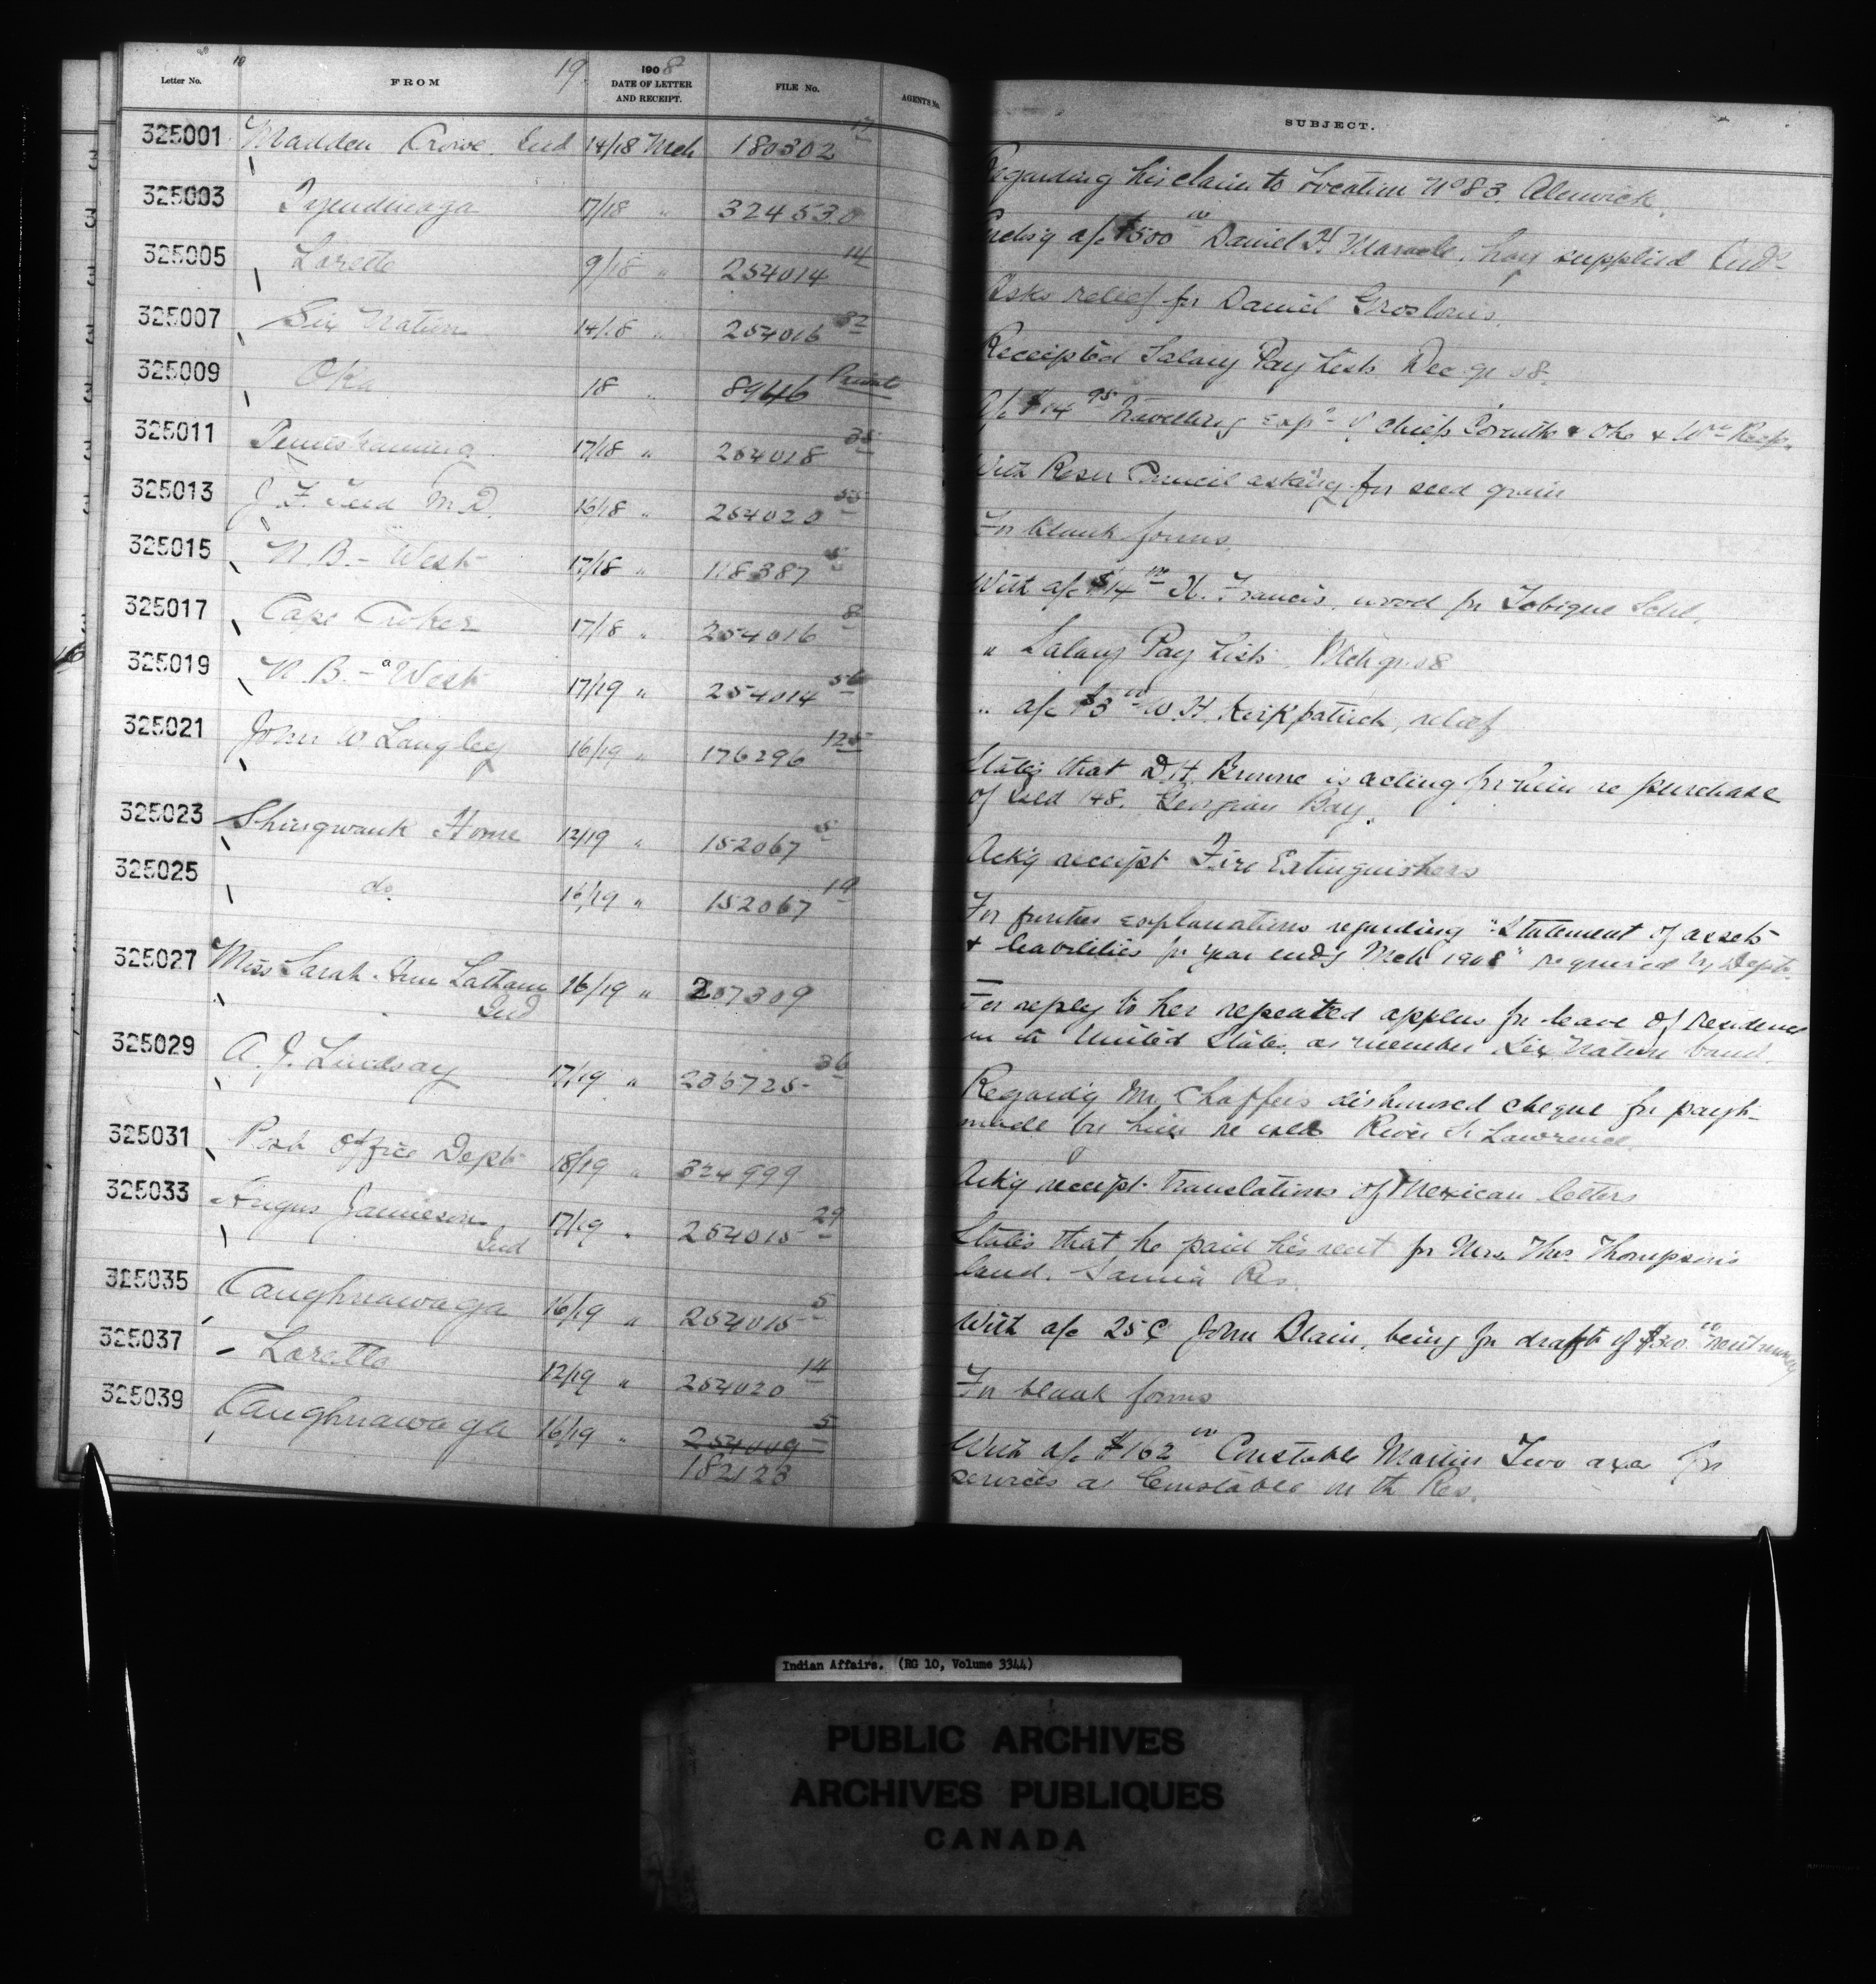 19 1908
Letter No. FROM DATE OF LETTER AND RECEIPT. FILE No. AGENTS No. SUBJECT.
325001 Madden Crowe Ind 14/18 Mch 180302 17 Regarding his claim to Location No 83, Alnwick.
325003 Tyendinaga 17/18 " 324530 a/c $500 Daniel H. Maracle, hay supplied Inds
325005 Lorette 9/18 " 254014 14 Asks relief for Daniel Groslouis.
325007 Six Nation 14/18 " 254016 32 Receipted Salary Pay Lists Dec qr 08
325009 Oka 18 " 8946 A/c $14 95 Travelling Exps of Chiefs & Oka &
325011 Temiskaming 17/18 " 254018 35 With Reson Council asking for seed grain
325013 J. F. Teed M.D. 16/18 " 254020 55 For blank forms
325015 N.B. - West 17/18 " 118387 5 With a/c $14 00 N. Francis, wood for Tobique Schl.
325017 Cape Croker 17/18 " 254016 8 " Salary Pay Lists, Mch qr 08
325019 N.B. - West 17/19 " 254014 56 " a/c $3 00 W. H. Kirkpatrick, relief
325021 John W Langley 16/19 " 176296 125 States that D.H. Browne is acting for him re purchase
of Isld 148. Georgian Bay.
325023 Shingwauk Home 12/19 " 152067 5 Ack'g receipt Fire Extinguishers
325025 do 16/19 " 152067 19 For further explanations regarding "Statement of assets
& liabilities for year end'g Mch 1908" required by Dept.
325027 Miss Sarah Ann Latham 16/19 " 207309 For reply to her repeated applns for leave of residence
Ind in the United States, as member Six Nation band.
325029 A. J. Lindsay 17/19 " 236725 36 Regard'g Mr. Chaffeis dishonored cheque for paymt
made by him re isld River St Lawrence.
325031 Post Office Dept 18/19 " 324999 Ack'g receipt translations of Mexican letters
325033 Angus Jamieson 17/19 " 254015 29 States that he paid his rent for Mrs. Thos. Thompson's
Ind land. Sarnia Res.
325035 Caughnawaga 16/19 " 254015 5 With a/c 25¢ John Blain, being for draft of $30.00 rent money
325037 Lorette 12/19 " 254020 14 For blank forms
325039 Caughnawaga 16/19 " 254009 5 With a/c $162 00 Constable Martin Two axe for
182123 services as Constable on the Res.
Indian Affairs. (RG 10, Volume 3344)
PUBLIC ARCHIVES
ARCHIVES PUBLIQUES
CANADA